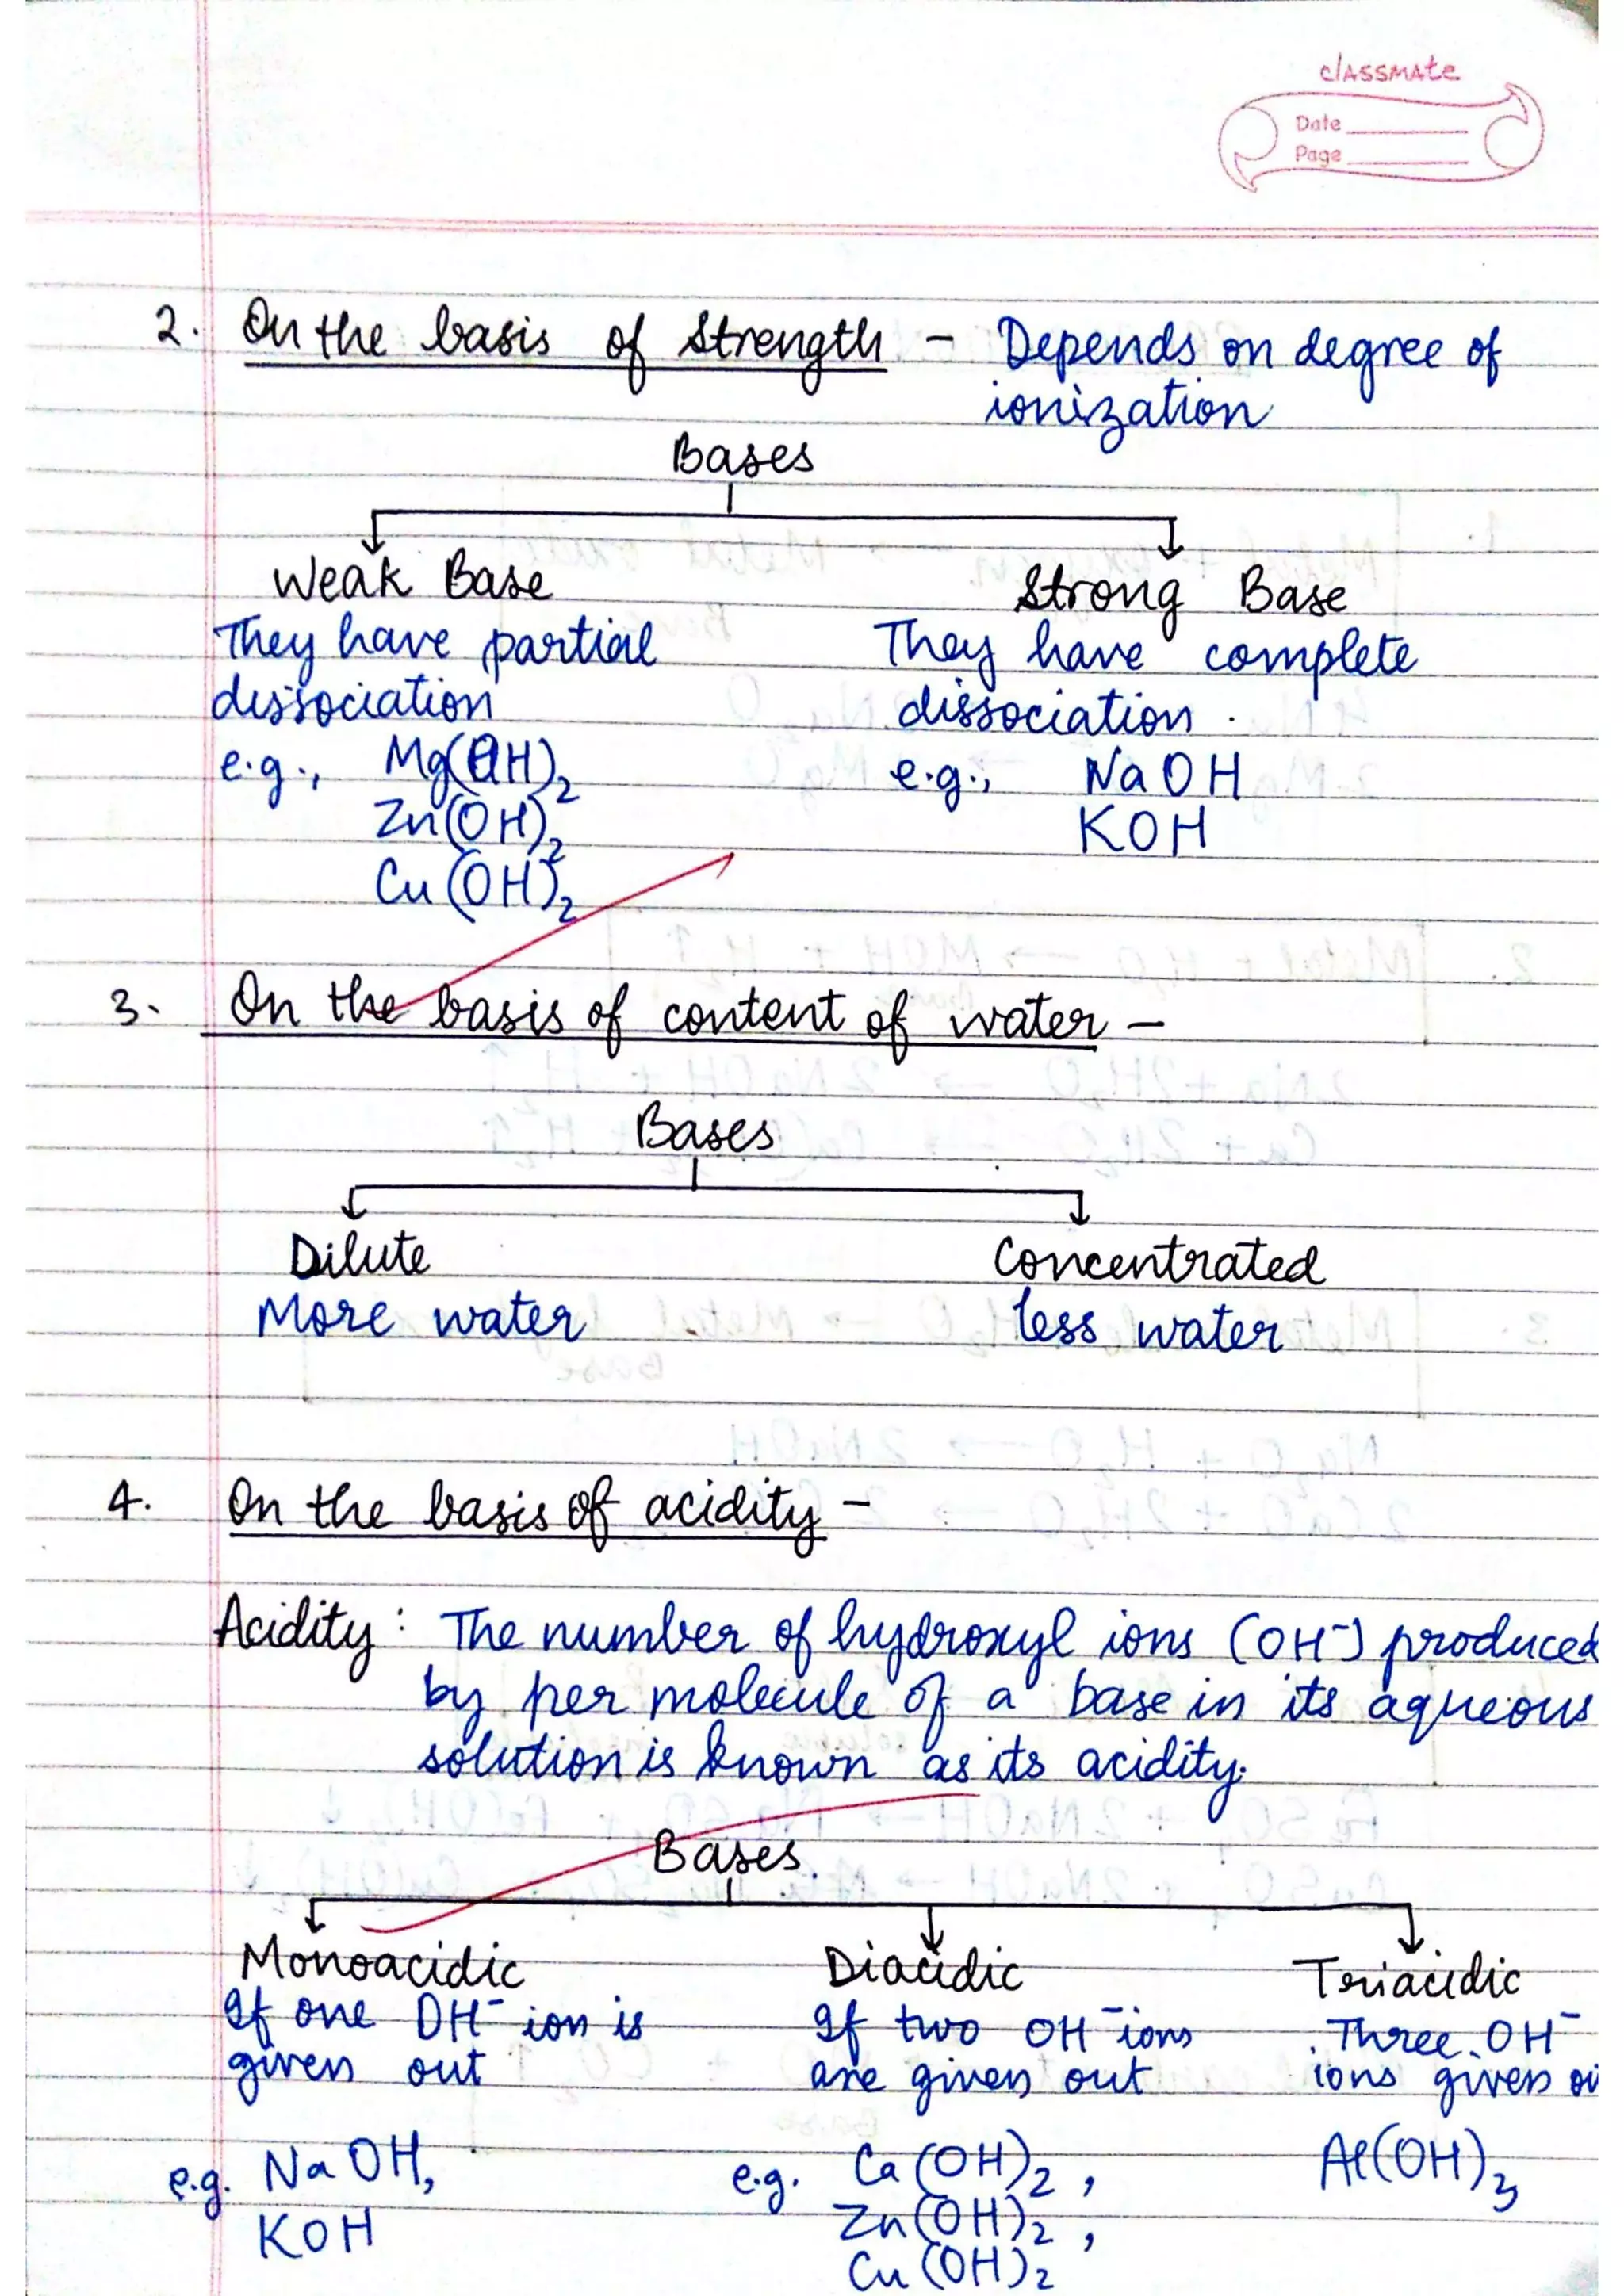 classmate
Date
Page
2. On the basis of Strength - Depends on degree of
ionization
Bases
Weak Base
They have partial
dissociation
e.g., Mg(OH)₂
Zn(OH)₂
Cu(OH)₂
Strong Base
They have complete
dissociation.
e.g., NaOH
KOH
3. On the basis of content of water -
Bases
Dilute
More water
Concentrated
less water
4. On the basis of acidity -
Acidity: The number of hydroxyl ions (OH⁻) produced
by per molecule of a base in its aqueous
solution is known as its acidity.
Bases
Monoacidic
If one OH⁻ ion is
given out
e.g. NaOH,
KOH
Diacidic
If two OH⁻ ions
are given out
e.g. Ca(OH)₂,
Zn(OH)₂,
Cu(OH)₂
Triacidic
Three OH⁻
ions given
Al(OH)₃